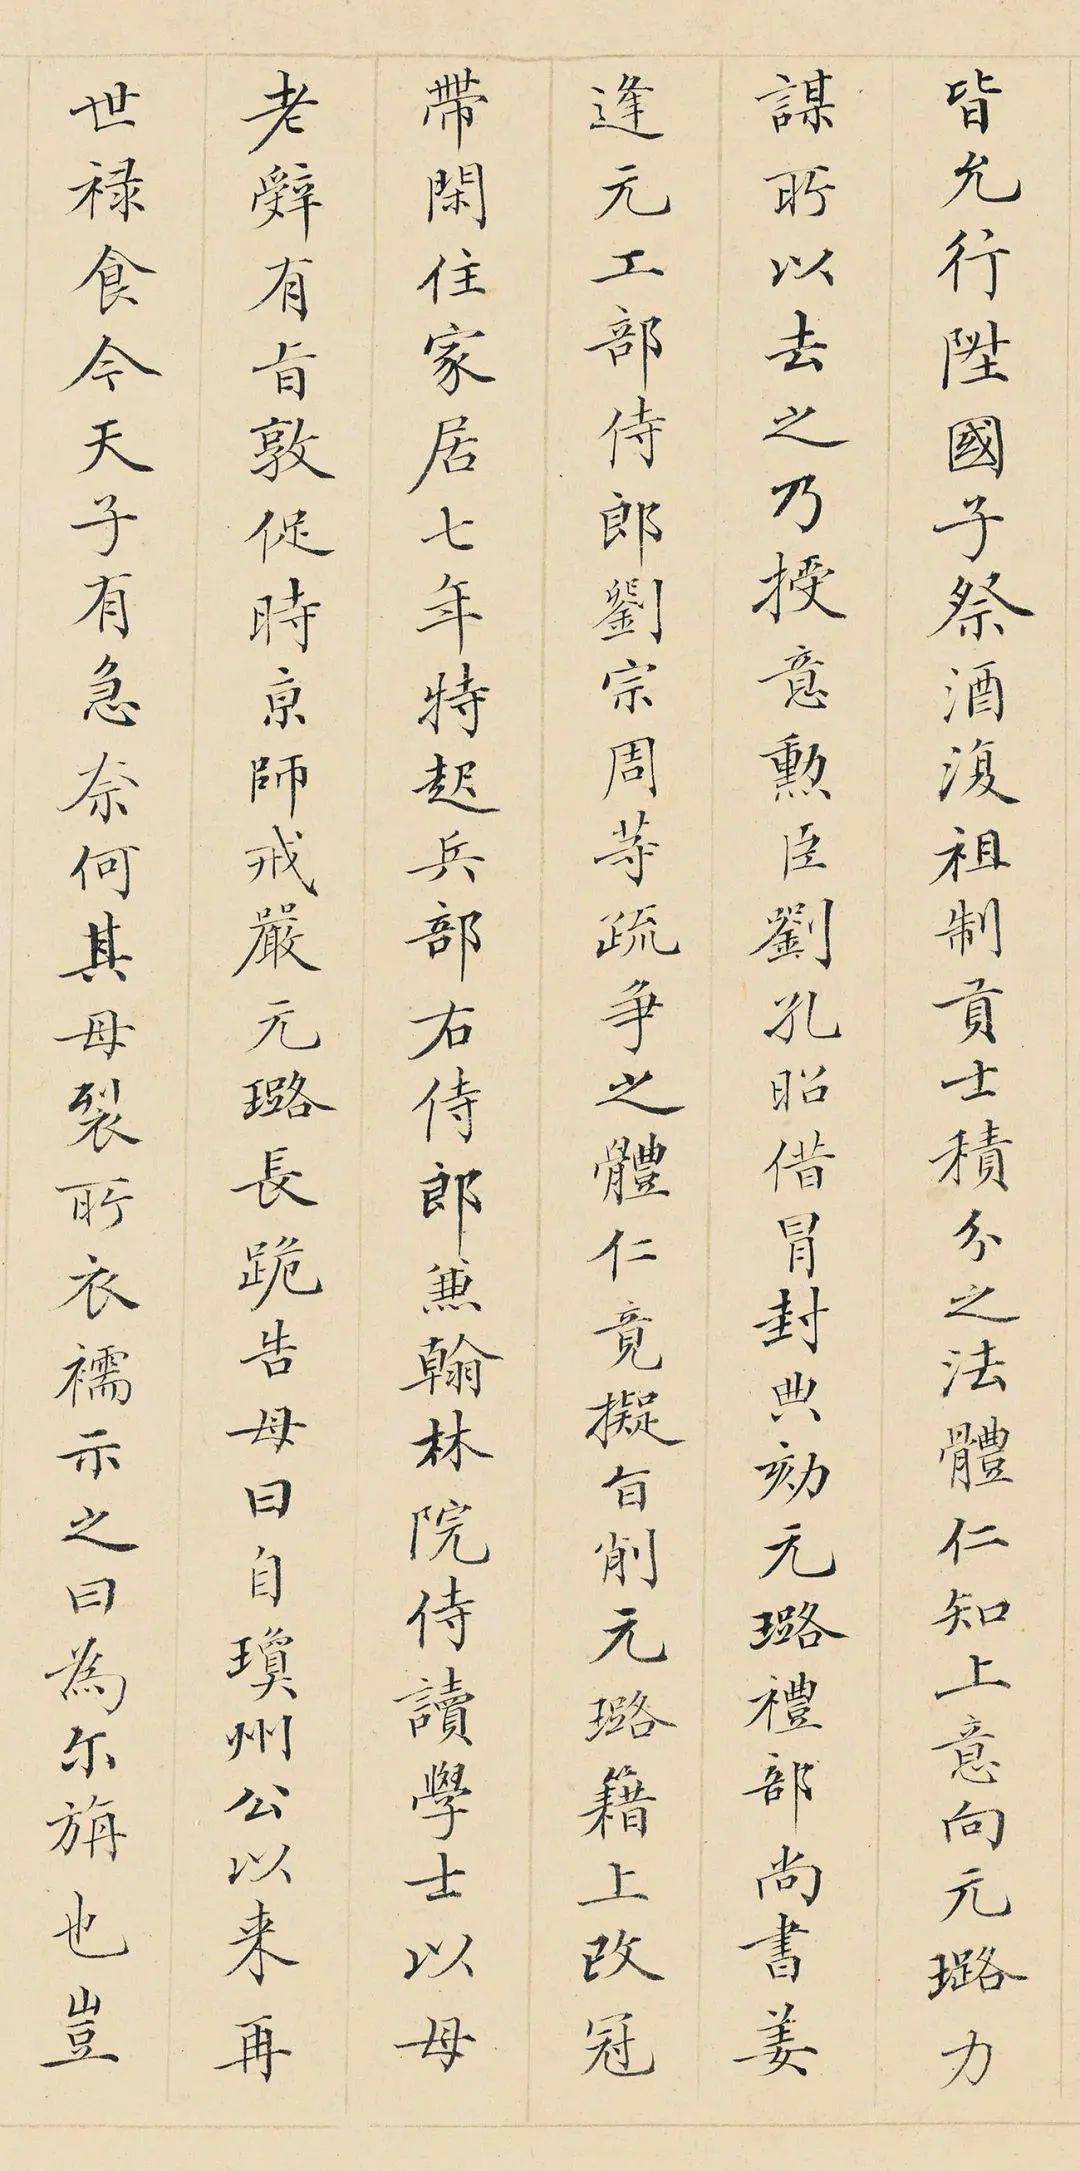 皆允行陞國子祭酒復祖制貢士積分之法體仁知上意向元璐力
謀所以去之乃授意勲臣劉孔昭借冒封典劾元璐禮部尚書姜
逢元工部侍郎劉宗周等疏争之體仁竟擬旨削元璐籍上改冠
帶閑住家居七年特起兵部右侍郎兼翰林院侍讀學士以母
老辭有旨敦促時京師戒嚴元璐長跪告母曰自瓊州公以来再
世禄食今天子有急奈何其母裂所衣襦示之曰為尔旃也豈